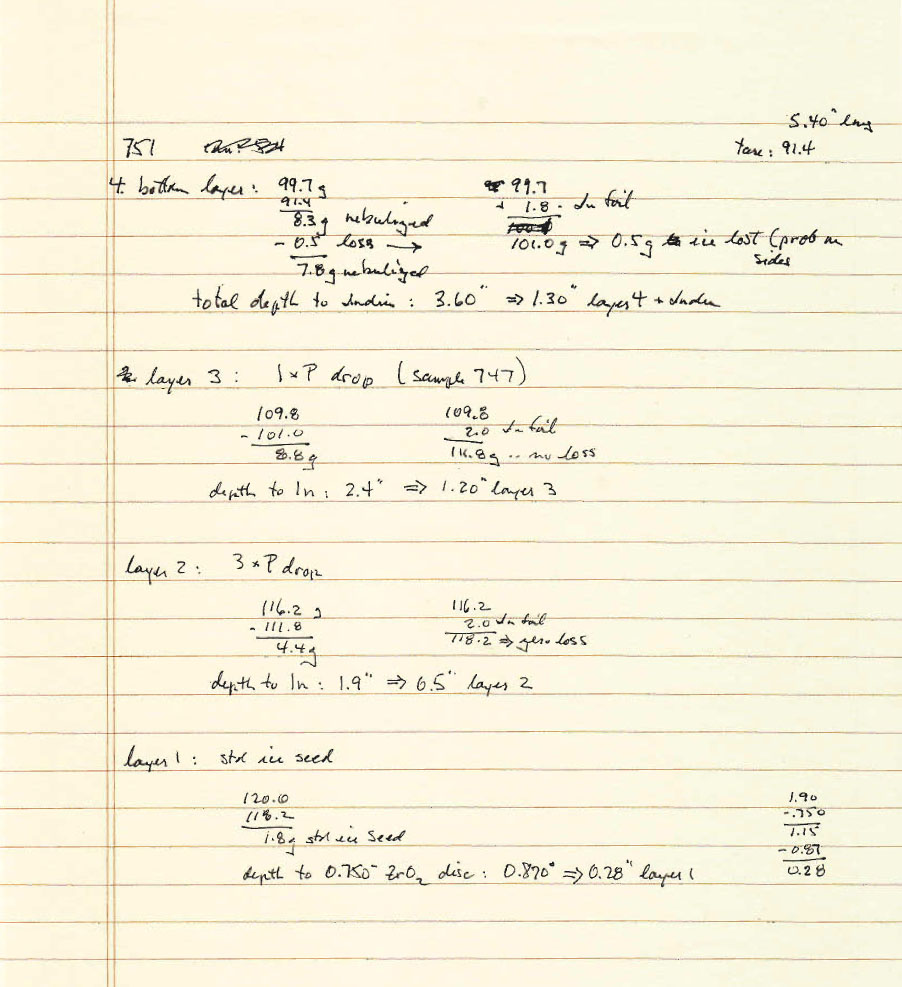 5.40" long
751
tare: 91.4
4. bottom layer: 99.7 g
91.4
8.3 g nebulized
- 0.5 loss →
7.8 g nebulized
99.7
+ 1.8 - In foil
101.0 g ⇒ 0.5 g ice lost (prob on
sides
total depth to indium: 3.60" ⇒ 1.30" layer 4 + Indium
layer 3: 1xP drop (sample 747)
109.8
- 101.0
8.8 g
109.8
2.0 In foil
111.8 g .. no loss
depth to In: 2.4" ⇒ 1.20" layer 3
layer 2: 3xP drop
116.2 g
- 111.8
4.4 g
116.2
2.0 In foil
118.2 ⇒ zero loss
depth to In: 1.9" ⇒ 0.5" layer 2
layer 1: std ice seed
120.0
118.2
1.8 g std ice seed
depth to 0.750" ZrO₂ disc: 0.870" ⇒ 0.28" layer 1
1.90
-.750
1.15
- 0.87
0.28